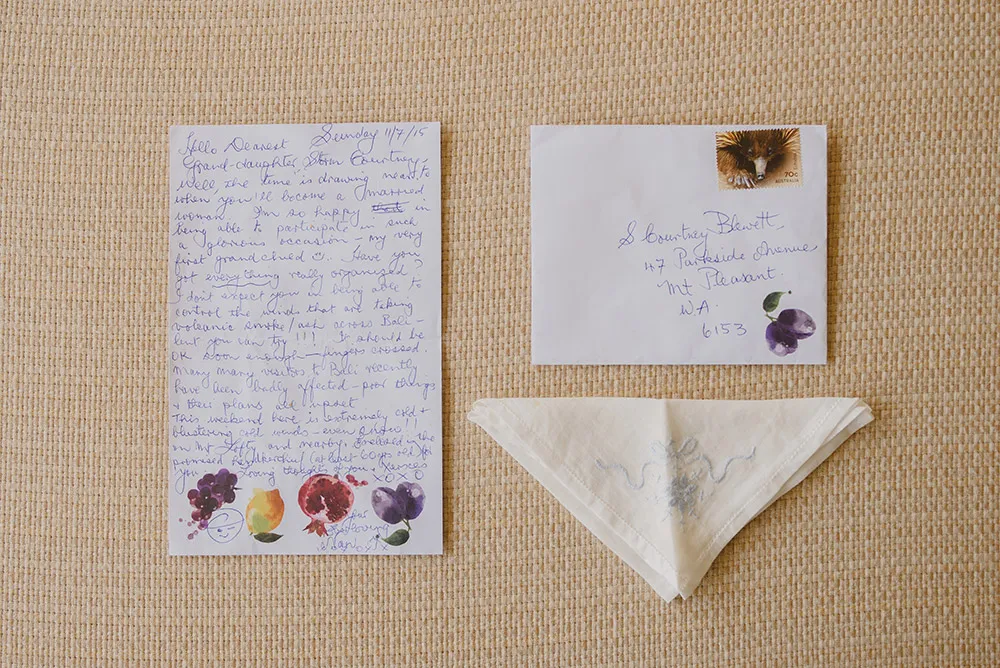 Sunday 11/7/15
Hello Dearest
Grand-daughter, Storm Courtney,
Well, the time is drawing near to
when you'll become a married
woman. I'm so happy in
being able to participate in such
a glorious occasion – my very
first grandchild. Have you
got everything really organized?
I don't expect you in being able to
control the winds that are taking
volcanic smoke/ash across Bali –
but you can try!!! It should be
OK soon enough – fingers crossed.
Many many visitors to Bali recently
have been badly affected – poor things
+ their plans all upset.
This weekend here is extremely cold +
blustering cold winds – even snow!!
on Mt Lofty and nearby. Enclosed is the
promised handkerchief (at least 60 yrs old) for
you. Loving thoughts of you. Kisses
XOXO
Your
loving
S Courtney Blewett
47 Parkside Avenue
Mt Pleasant.
WA.
6153
70c
AUSTRALIA